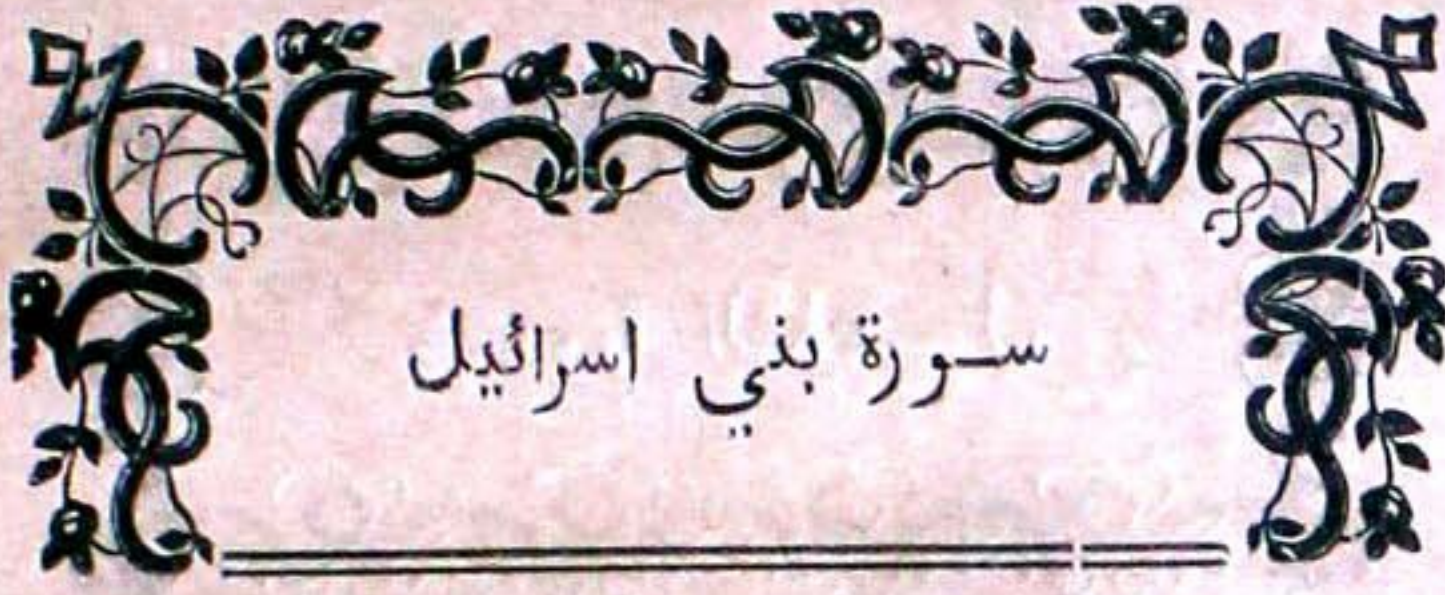 سورة بني اسرائيل